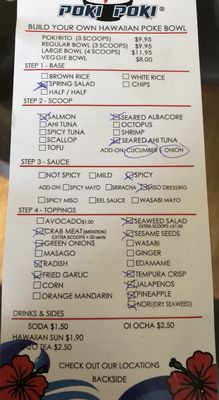 POKI POKI
BUILD YOUR OWN HAWAIIAN POKE BOWL
POKIRITO (3 SCOOPS) $9.95
REGULAR BOWL (3 SCOOPS) $9.95
LARGE BOWL (4 SCOOPS) $11.95
VEGGIE BOWL $8.00
STEP 1 - BASE
BROWN RICE WHITE RICE
SPRING SALAD CHIPS
HALF / HALF
STEP 2 - SCOOP
SALMON SEARED ALBACORE
AHI TUNA OCTOPUS
SPICY TUNA SHRIMP
SCALLOP SEARED AHI TUNA
TOFU ADD-ON: CUCUMBER ONION
STEP 3 - SAUCE
NOT SPICY MILD SPICY
ADD-ON: SPICY MAYO SRIRACHA MISO DRESSING
SPICY MISO EEL SAUCE WASABI MAYO
STEP 4 - TOPPINGS
AVOCADO $1.00 SEAWEED SALAD
EXTRA SCOOPS +$1.00
CRAB MEAT (IMITATION) SESAME SEEDS
EXTRA SCOOPS + 50 cents
GREEN ONIONS WASABI
MASAGO GINGER
RADISH EDAMAME
FRIED GARLIC TEMPURA CRISP
CORN JALAPENOS
ORANGE MANDARIN PINEAPPLE
NORI (DRY SEAWEED)
DRINKS & SIDES
SODA $1.50 OI OCHA $2.50
HAWAIIAN SUN $1.90
TEA $2.50
CHECK OUT OUR LOCATIONS
BACKSIDE